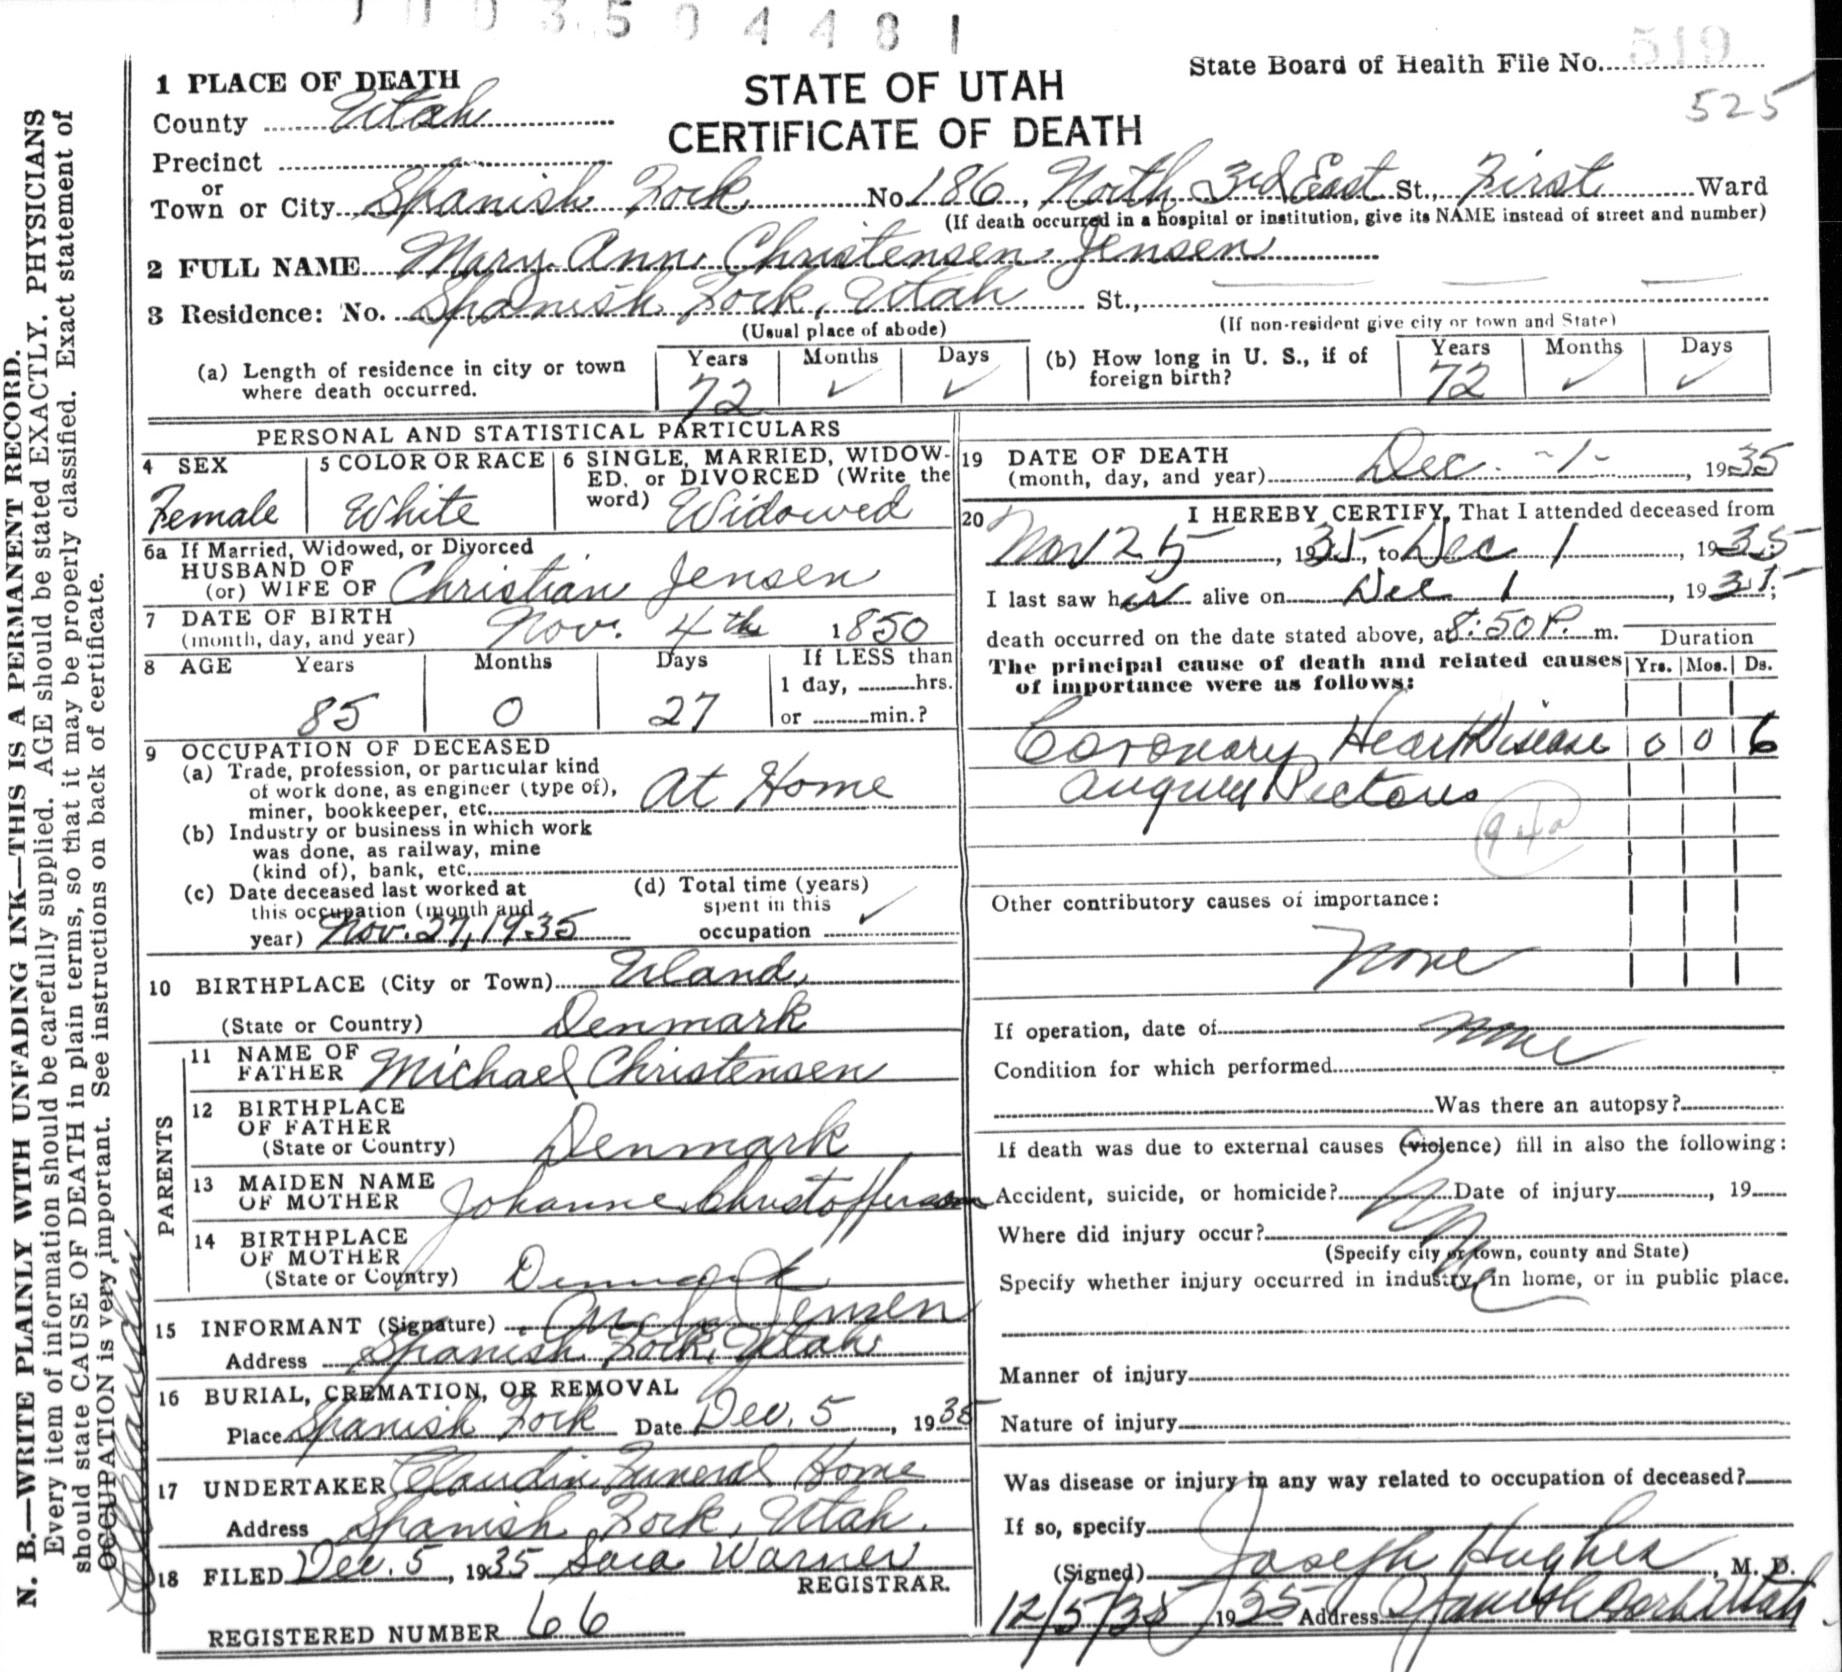 1003504481
State Board of Health File No. 519
525
STATE OF UTAH
CERTIFICATE OF DEATH
1 PLACE OF DEATH
County Utah
Precinct
or
Town or City Spanish Fork No 186, North 3rd East St., First Ward
(If death occurred in a hospital or institution, give its NAME instead of street and number)
2 FULL NAME Mary Ann Christensen Jensen
3 Residence: No. Spanish Fork, Utah St.,
(Usual place of abode) (If non-resident give city or town and State)
(a) Length of residence in city or town where death occurred. Years 72 Months ✓ Days ✓
(b) How long in U. S., if of foreign birth? Years 72 Months ✓ Days ✓
PERSONAL AND STATISTICAL PARTICULARS
4 SEX Female
5 COLOR OR RACE White
6 SINGLE, MARRIED, WIDOWED, or DIVORCED (Write the word) Widowed
6a If Married, Widowed, or Divorced
HUSBAND OF
(or) WIFE OF Christian Jensen
7 DATE OF BIRTH
(month, day, and year) Nov. 4th 1850
8 AGE Years 85 Months 0 Days 27 If LESS than
1 day, hrs.
or min.?
9 OCCUPATION OF DECEASED
(a) Trade, profession, or particular kind
of work done, as engineer (type of),
miner, bookkeeper, etc. At Home
(b) Industry or business in which work
was done, as railway, mine
(kind of), bank, etc.
(c) Date deceased last worked at
this occupation (month and
year) Nov. 27, 1935
(d) Total time (years)
spent in this
occupation ✓
10 BIRTHPLACE (City or Town)
(State or Country) Denmark
PARENTS
11 NAME OF
FATHER Michael Christensen
12 BIRTHPLACE
OF FATHER
(State or Country) Denmark
13 MAIDEN NAME
OF MOTHER Johanne Christofferson
14 BIRTHPLACE
OF MOTHER
(State or Country) Denmark
15 INFORMANT (Signature) Jensen
Address Spanish Fork, Utah
16 BURIAL, CREMATION, OR REMOVAL
Place Spanish Fork Date Dec. 5, 1935
17 UNDERTAKER Claudin Funeral Home
Address Spanish Fork, Utah.
18 FILED Dec. 5, 1935 Sara Warner
REGISTRAR.
REGISTERED NUMBER 66
19 DATE OF DEATH
(month, day, and year) Dec. -1-, 1935
20 I HEREBY CERTIFY, That I attended deceased from
Nov 25, 1935, to Dec 1, 1935
I last saw her alive on Dec 1, 1935;
death occurred on the date stated above, at 8:50 P. m.
Duration
The principal cause of death and related causes Yrs. Mos. Ds.
of importance were as follows:
Coronary Heart Disease 0 0 6
Pectoris
94a
Other contributory causes of importance:
None
If operation, date of none
Condition for which performed
Was there an autopsy?
If death was due to external causes (violence) fill in also the following:
Accident, suicide, or homicide? Date of injury, 19
Where did injury occur?
(Specify city or town, county and State)
Specify whether injury occurred in industry, in home, or in public place.
Manner of injury
Nature of injury
Was disease or injury in any way related to occupation of deceased?
If so, specify
(Signed) Joseph Hughes, M. D.
12/5/35 1935 Address Spanish Fork Utah
N. B.—WRITE PLAINLY WITH UNFADING INK—THIS IS A PERMANENT RECORD.
Every item of information should be carefully supplied. AGE should be stated EXACTLY. PHYSICIANS
should state CAUSE OF DEATH in plain terms, so that it may be properly classified. Exact statement of
OCCUPATION is very important. See instructions on back of certificate.